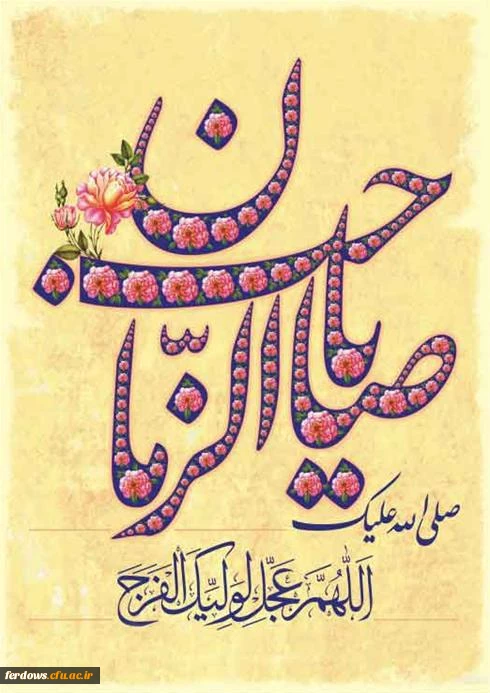 یا صاحب الزّمان
صلی الله علیک
اَللّٰهُمَّ عَجِّل لِوَلِیِّکَ الْفَرَجَ
ferdows.cfu.ac.ir